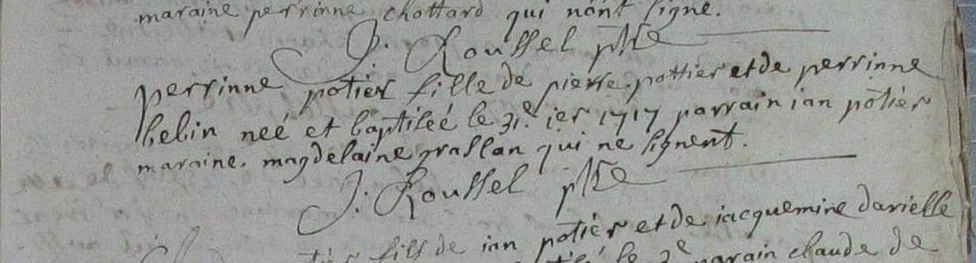 maraine perrinne chottard qui nont signe.
J. Roussel ptre
perrinne potier fille de pierre pottier et de perrinne
belin neé et baptiseé le 31e ier 1717 parrain ian potier
maraine. magdelaine graslan qui ne signent.
J. Roussel ptre
fils de ian potier et de iacquemine davielle
le parain claude de